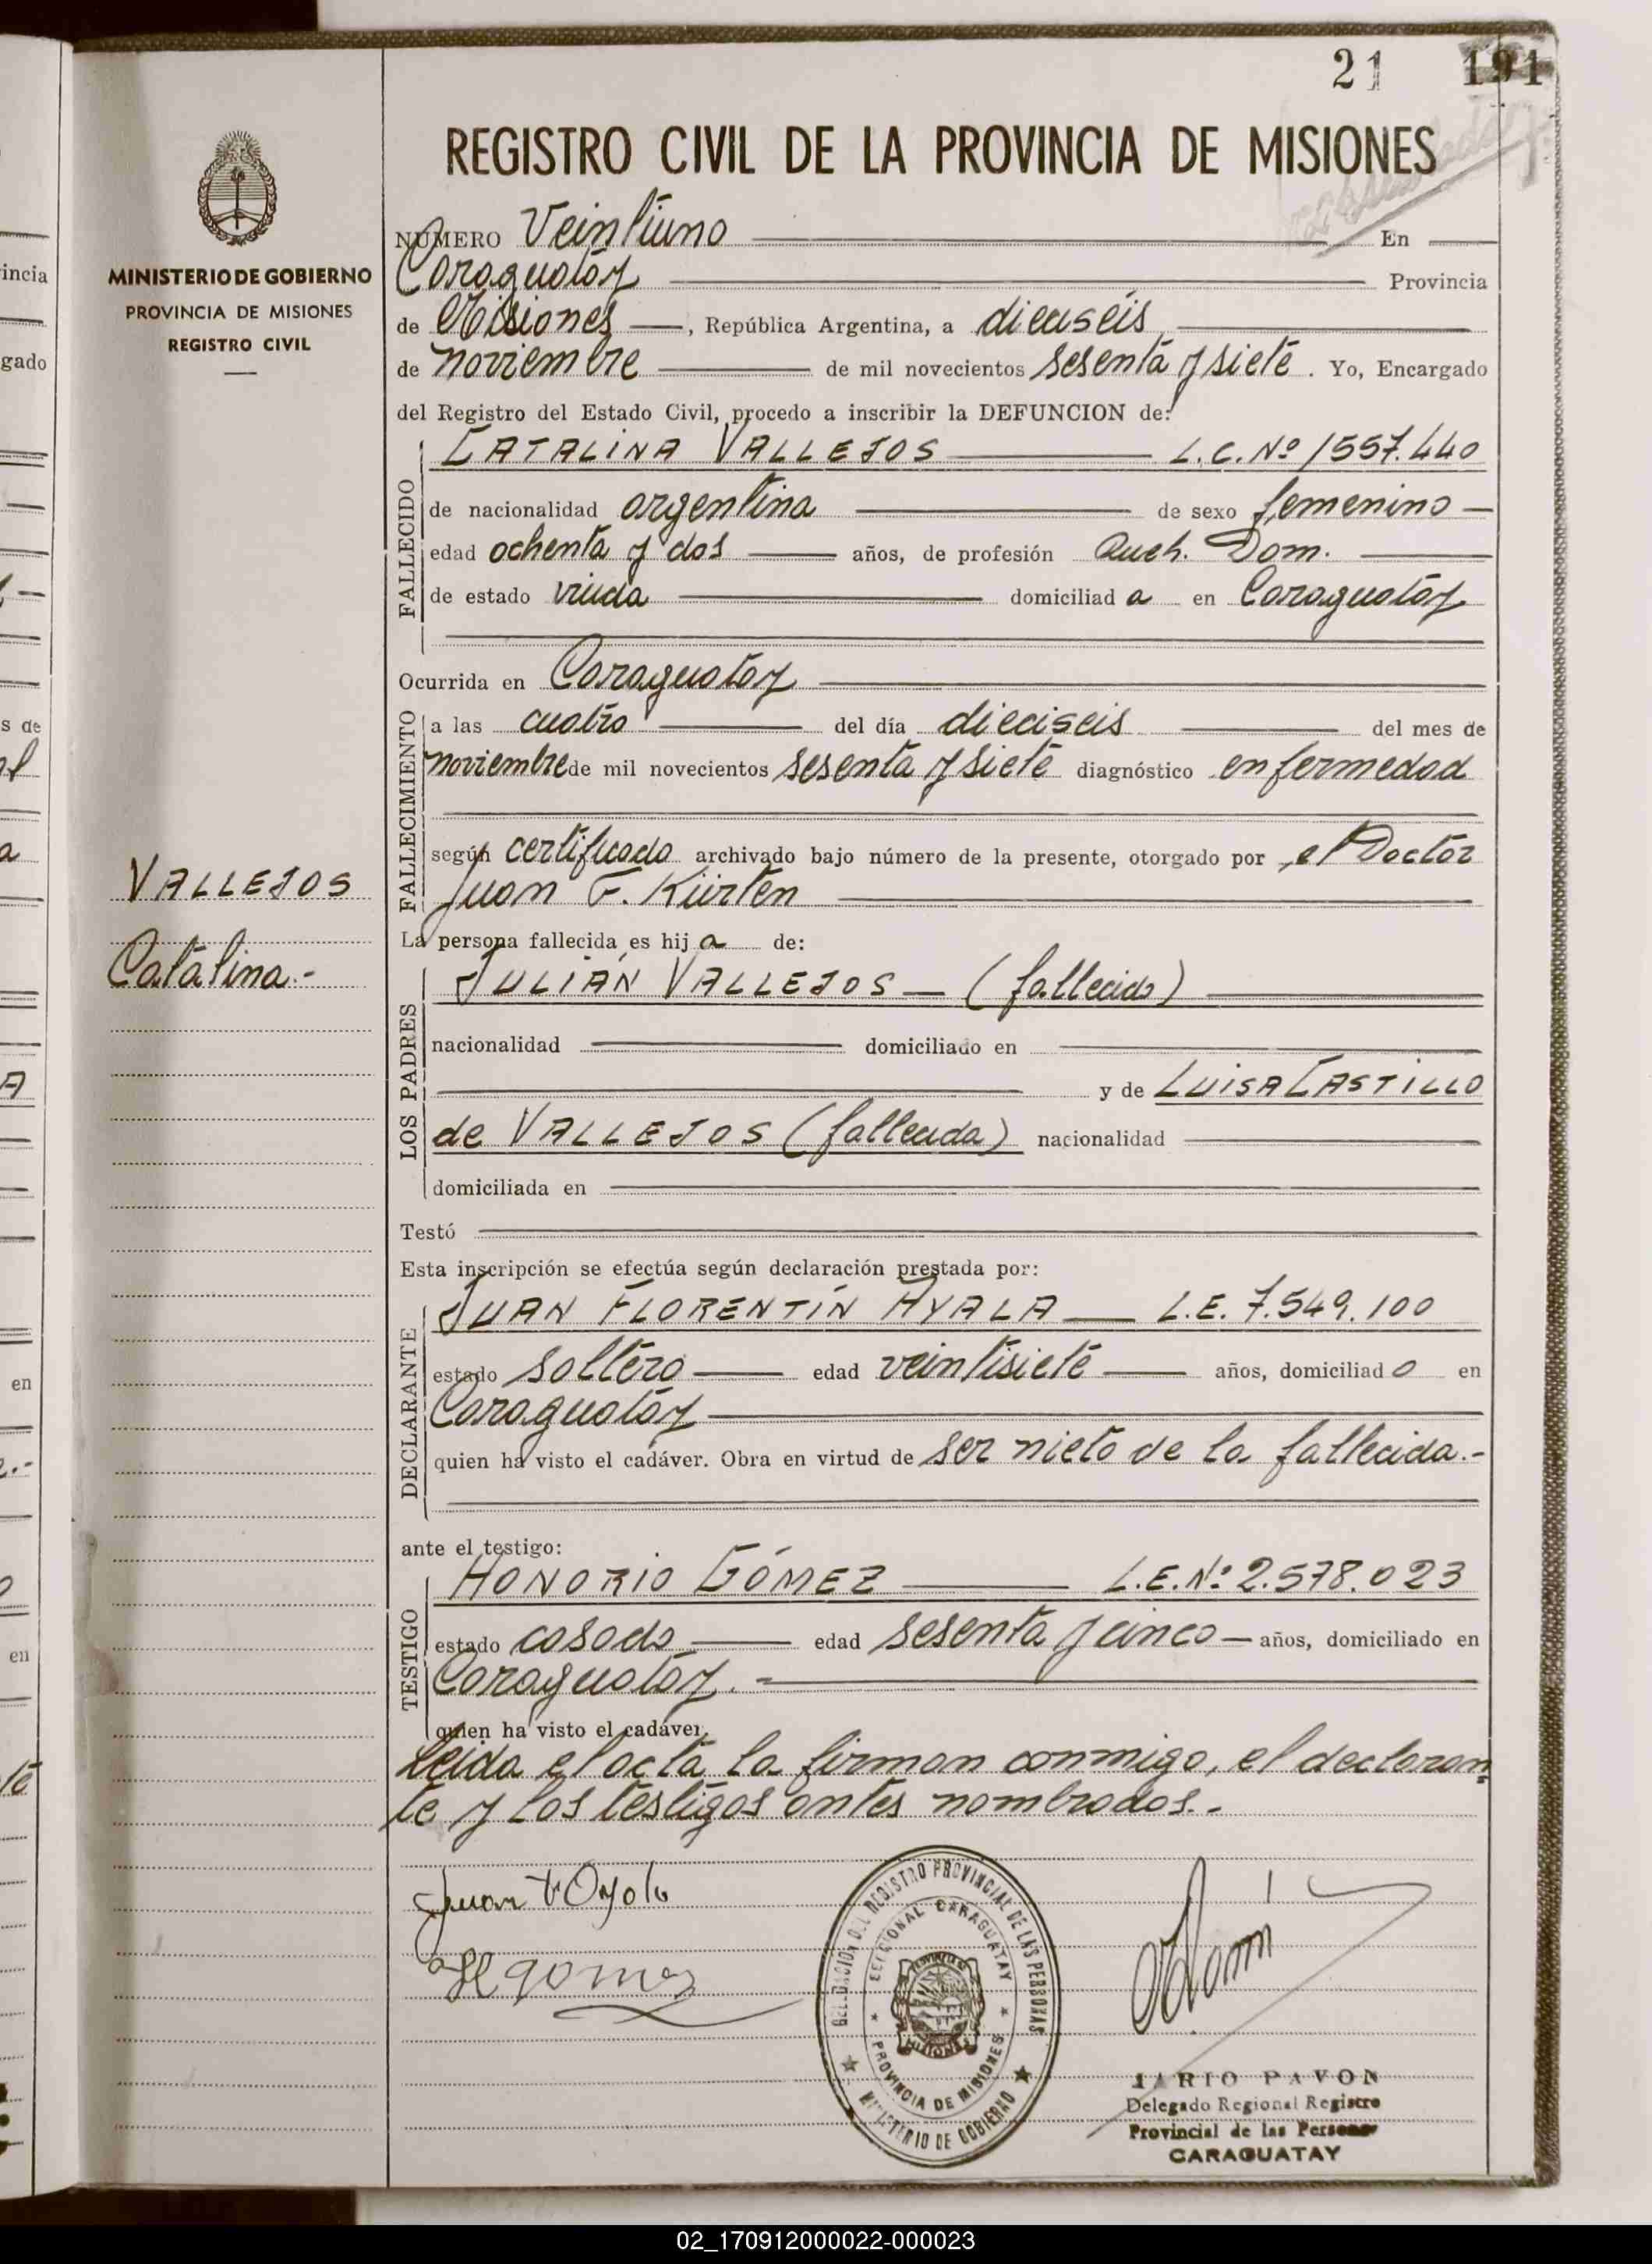 21 191
REGISTRO CIVIL DE LA PROVINCIA DE MISIONES
MINISTERIO DE GOBIERNO
PROVINCIA DE MISIONES
REGISTRO CIVIL
NUMERO Veintiuno En
Caraguatay Provincia
de Misiones, República Argentina, a dieciséis
de noviembre de mil novecientos sesenta y siete. Yo, Encargado
del Registro del Estado Civil, procedo a inscribir la DEFUNCION de:
FALLECIDO
CATALINA VALLEJOS L.C. Nº 1557.440
de nacionalidad argentina de sexo femenino
edad ochenta y dos años, de profesión Queh. Dom.
de estado viuda domiciliad a en Caraguatay
Ocurrida en Caraguatay
FALLECIMIENTO
a las cuatro del día dieciseis del mes de
noviembre de mil novecientos sesenta y siete diagnóstico enfermedad
según certificado archivado bajo número de la presente, otorgado por el Doctor
Juan F. Kürten
VALLEJOS
Catalina.-
La persona fallecida es hij a de:
LOS PADRES
JULIÁN VALLEJOS — (fallecido)
nacionalidad domiciliado en
y de LUISA CASTILLO
de VALLEJOS (fallecida) nacionalidad
domiciliada en
Testó
Esta inscripción se efectúa según declaración prestada por:
DECLARANTE
JUAN FLORENTÍN AYALA L.E. 7.549.100
estado soltero edad veintisiete años, domiciliad o en
Caraguatay
quien ha visto el cadáver. Obra en virtud de ser nieto de la fallecida.-
ante el testigo:
TESTIGO
HONORIO GÓMEZ L.E.Nº: 2.578.023
estado casado edad sesenta y cinco — años, domiciliado en
Caraguatay.-
quien ha visto el cadáver.
Leída el acta la firman conmigo, el declaran
te y los testigos antes nombrados.-
Juan F Ayala
H gomez
DELEGACION DEL REGISTRO PROVINCIAL DE LAS PERSONAS
SECCIONAL CARAGUATAY
PROVINCIA DE MISIONES
MINISTERIO DE GOBIERNO
MISIONES
MARIO PAVON
Delegado Regional Registro
Provincial de las Personas
CARAGUATAY
02_170912000022-000023